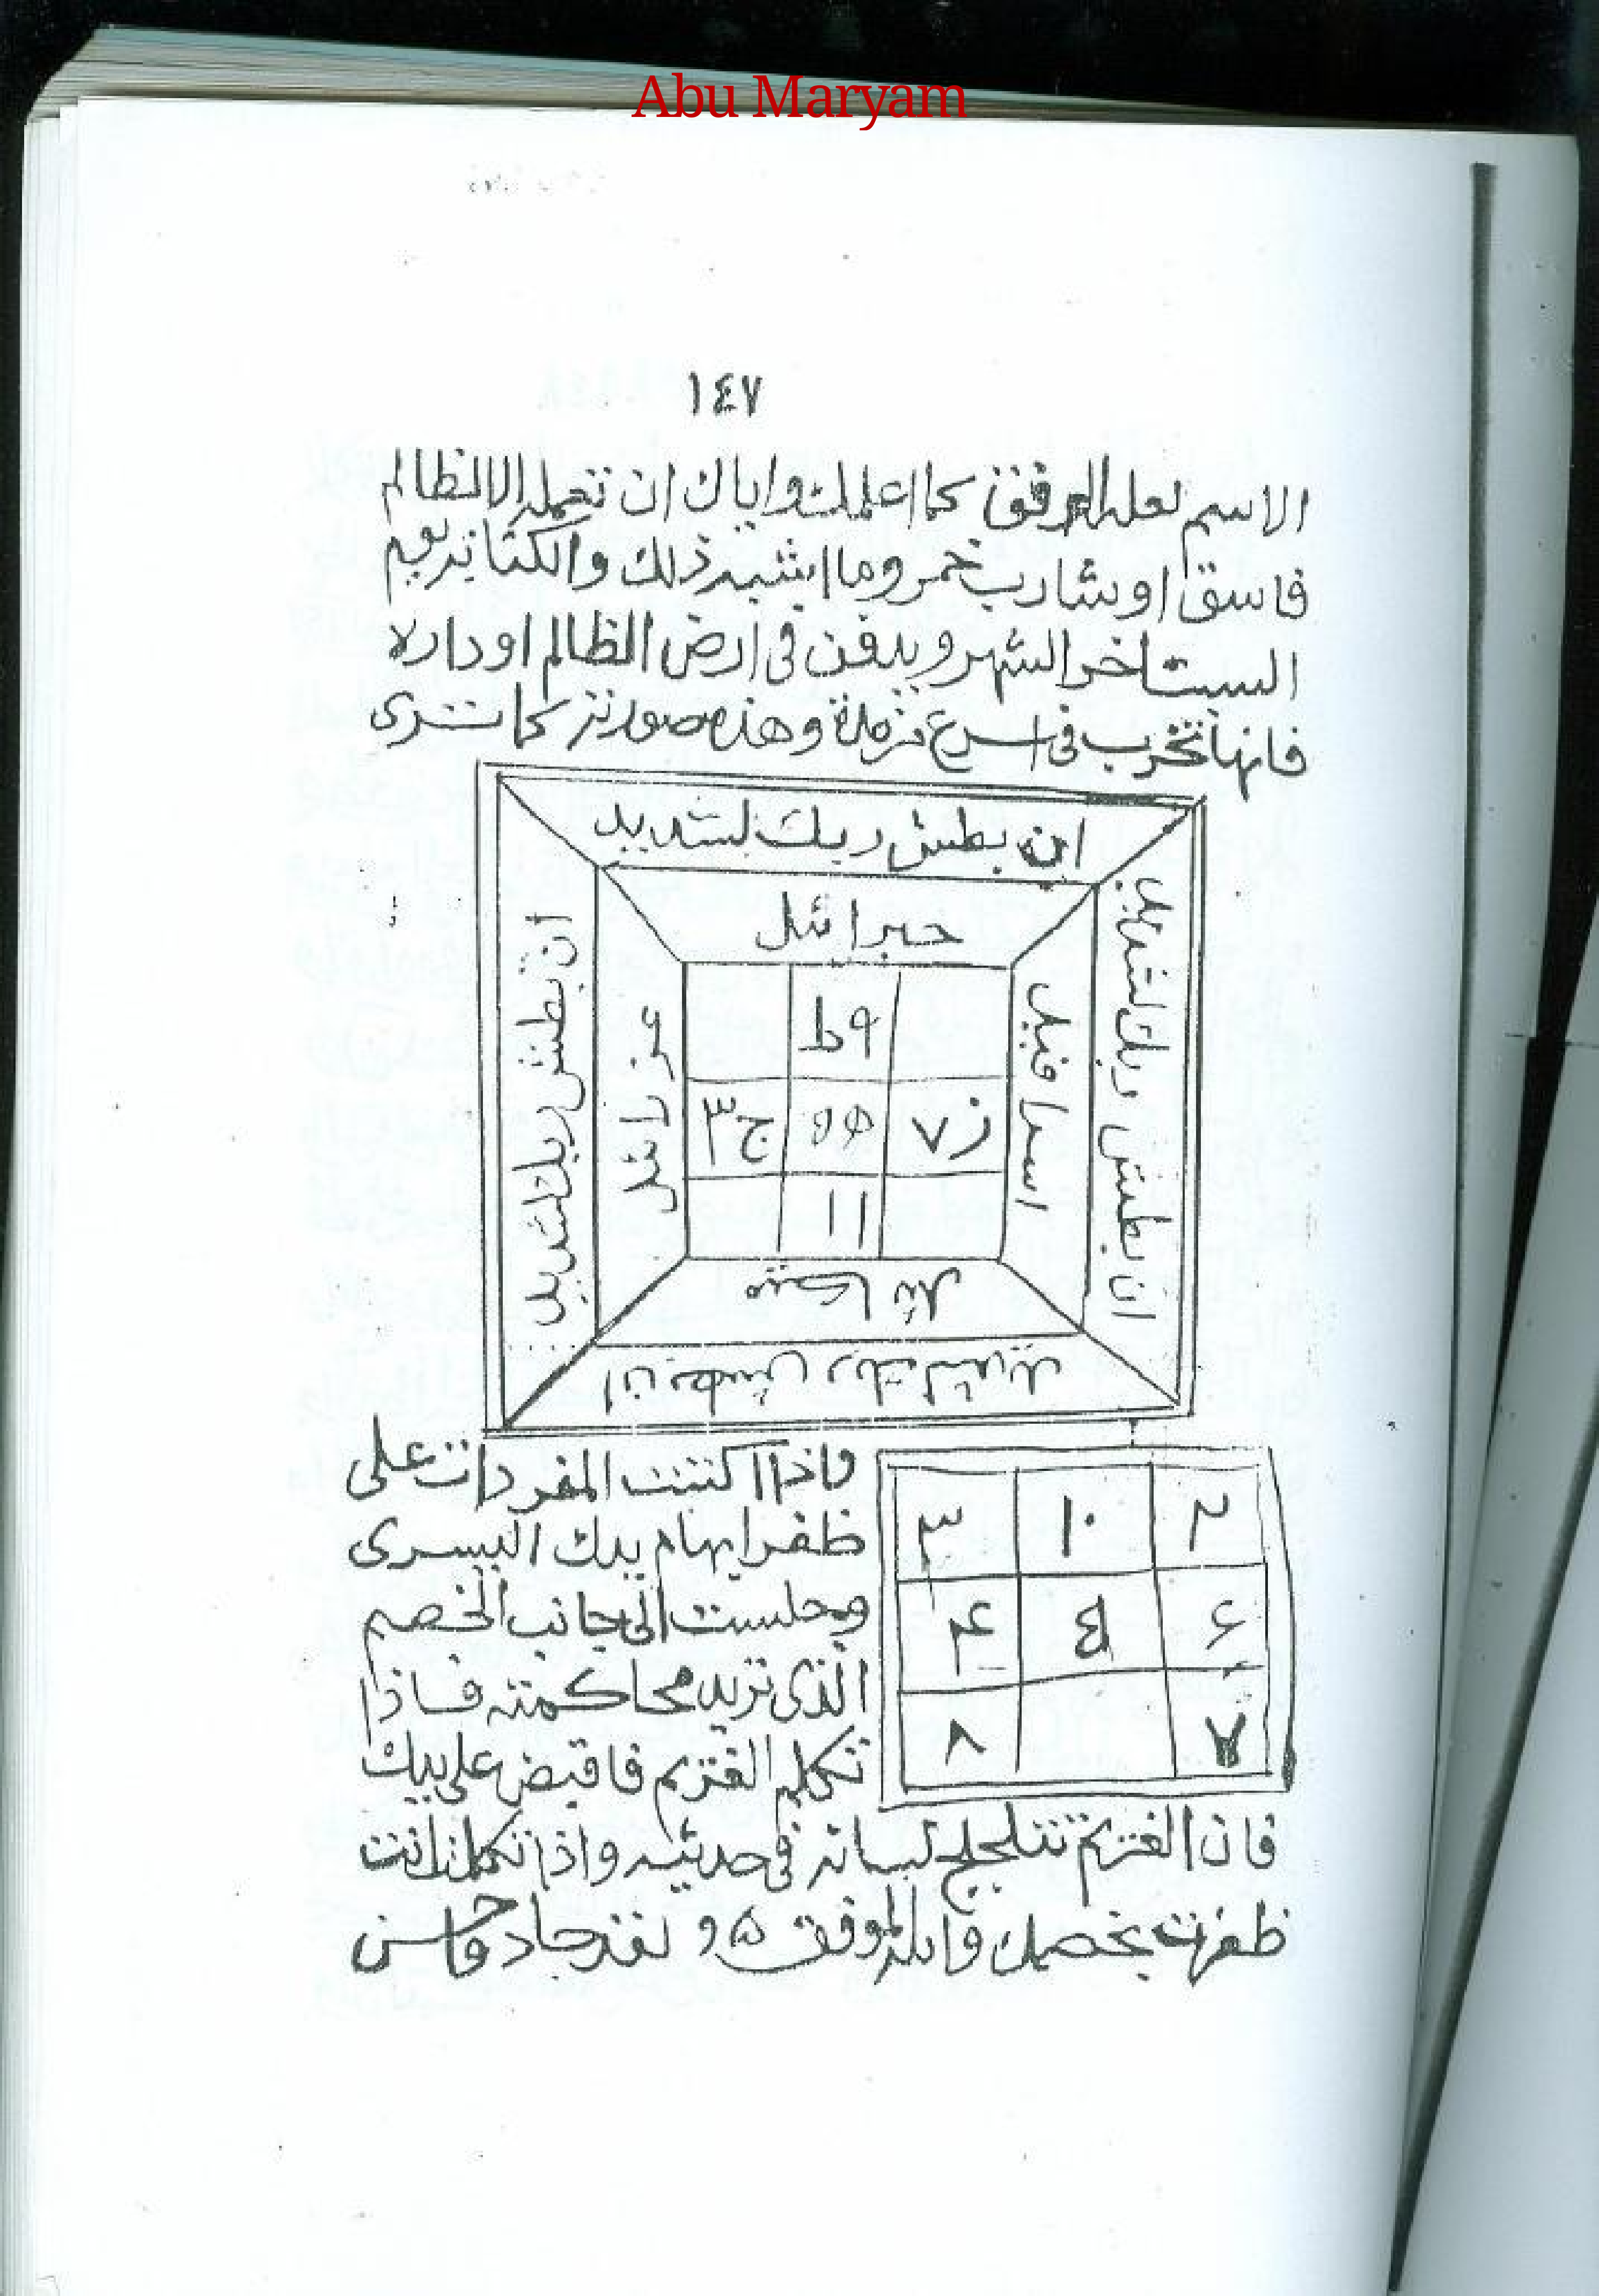 Abu Maryam
١٤٧
الاسم كما اعلمك واياك ان تعمله الا لظالم
فاسق او شارب خمر وما اشبه ذلك والكتابة يوم
السبت اخر الشهر ويدفن فى ارض الظالم او داره
فانها تخرب فى اسرع مدة وهذه صورته كما ترى
ان بطش ربك لشديد
جبرائيل
ان بطش ربك لشديد
عزرائيل
اسرافيل
ان بطش ربك لشديد
٩ط
ز٧ ٥ه ج٣
١١
ميكائيل
ان بطش ربك لشديد
٢ ١٠ ٣
٨
واذا كتبت المفردات على
ظفر ابهام يدك اليسرى
وجلست الى جانب الخصم
الذى تريد محاكمته فاذا
تكلم الغريم فاقبض على يدك
فان الغريم تتلجلج لسانه فى حديثه واذا تكلمت انت
ظفرت بخصمك والله الموفق ٥ و